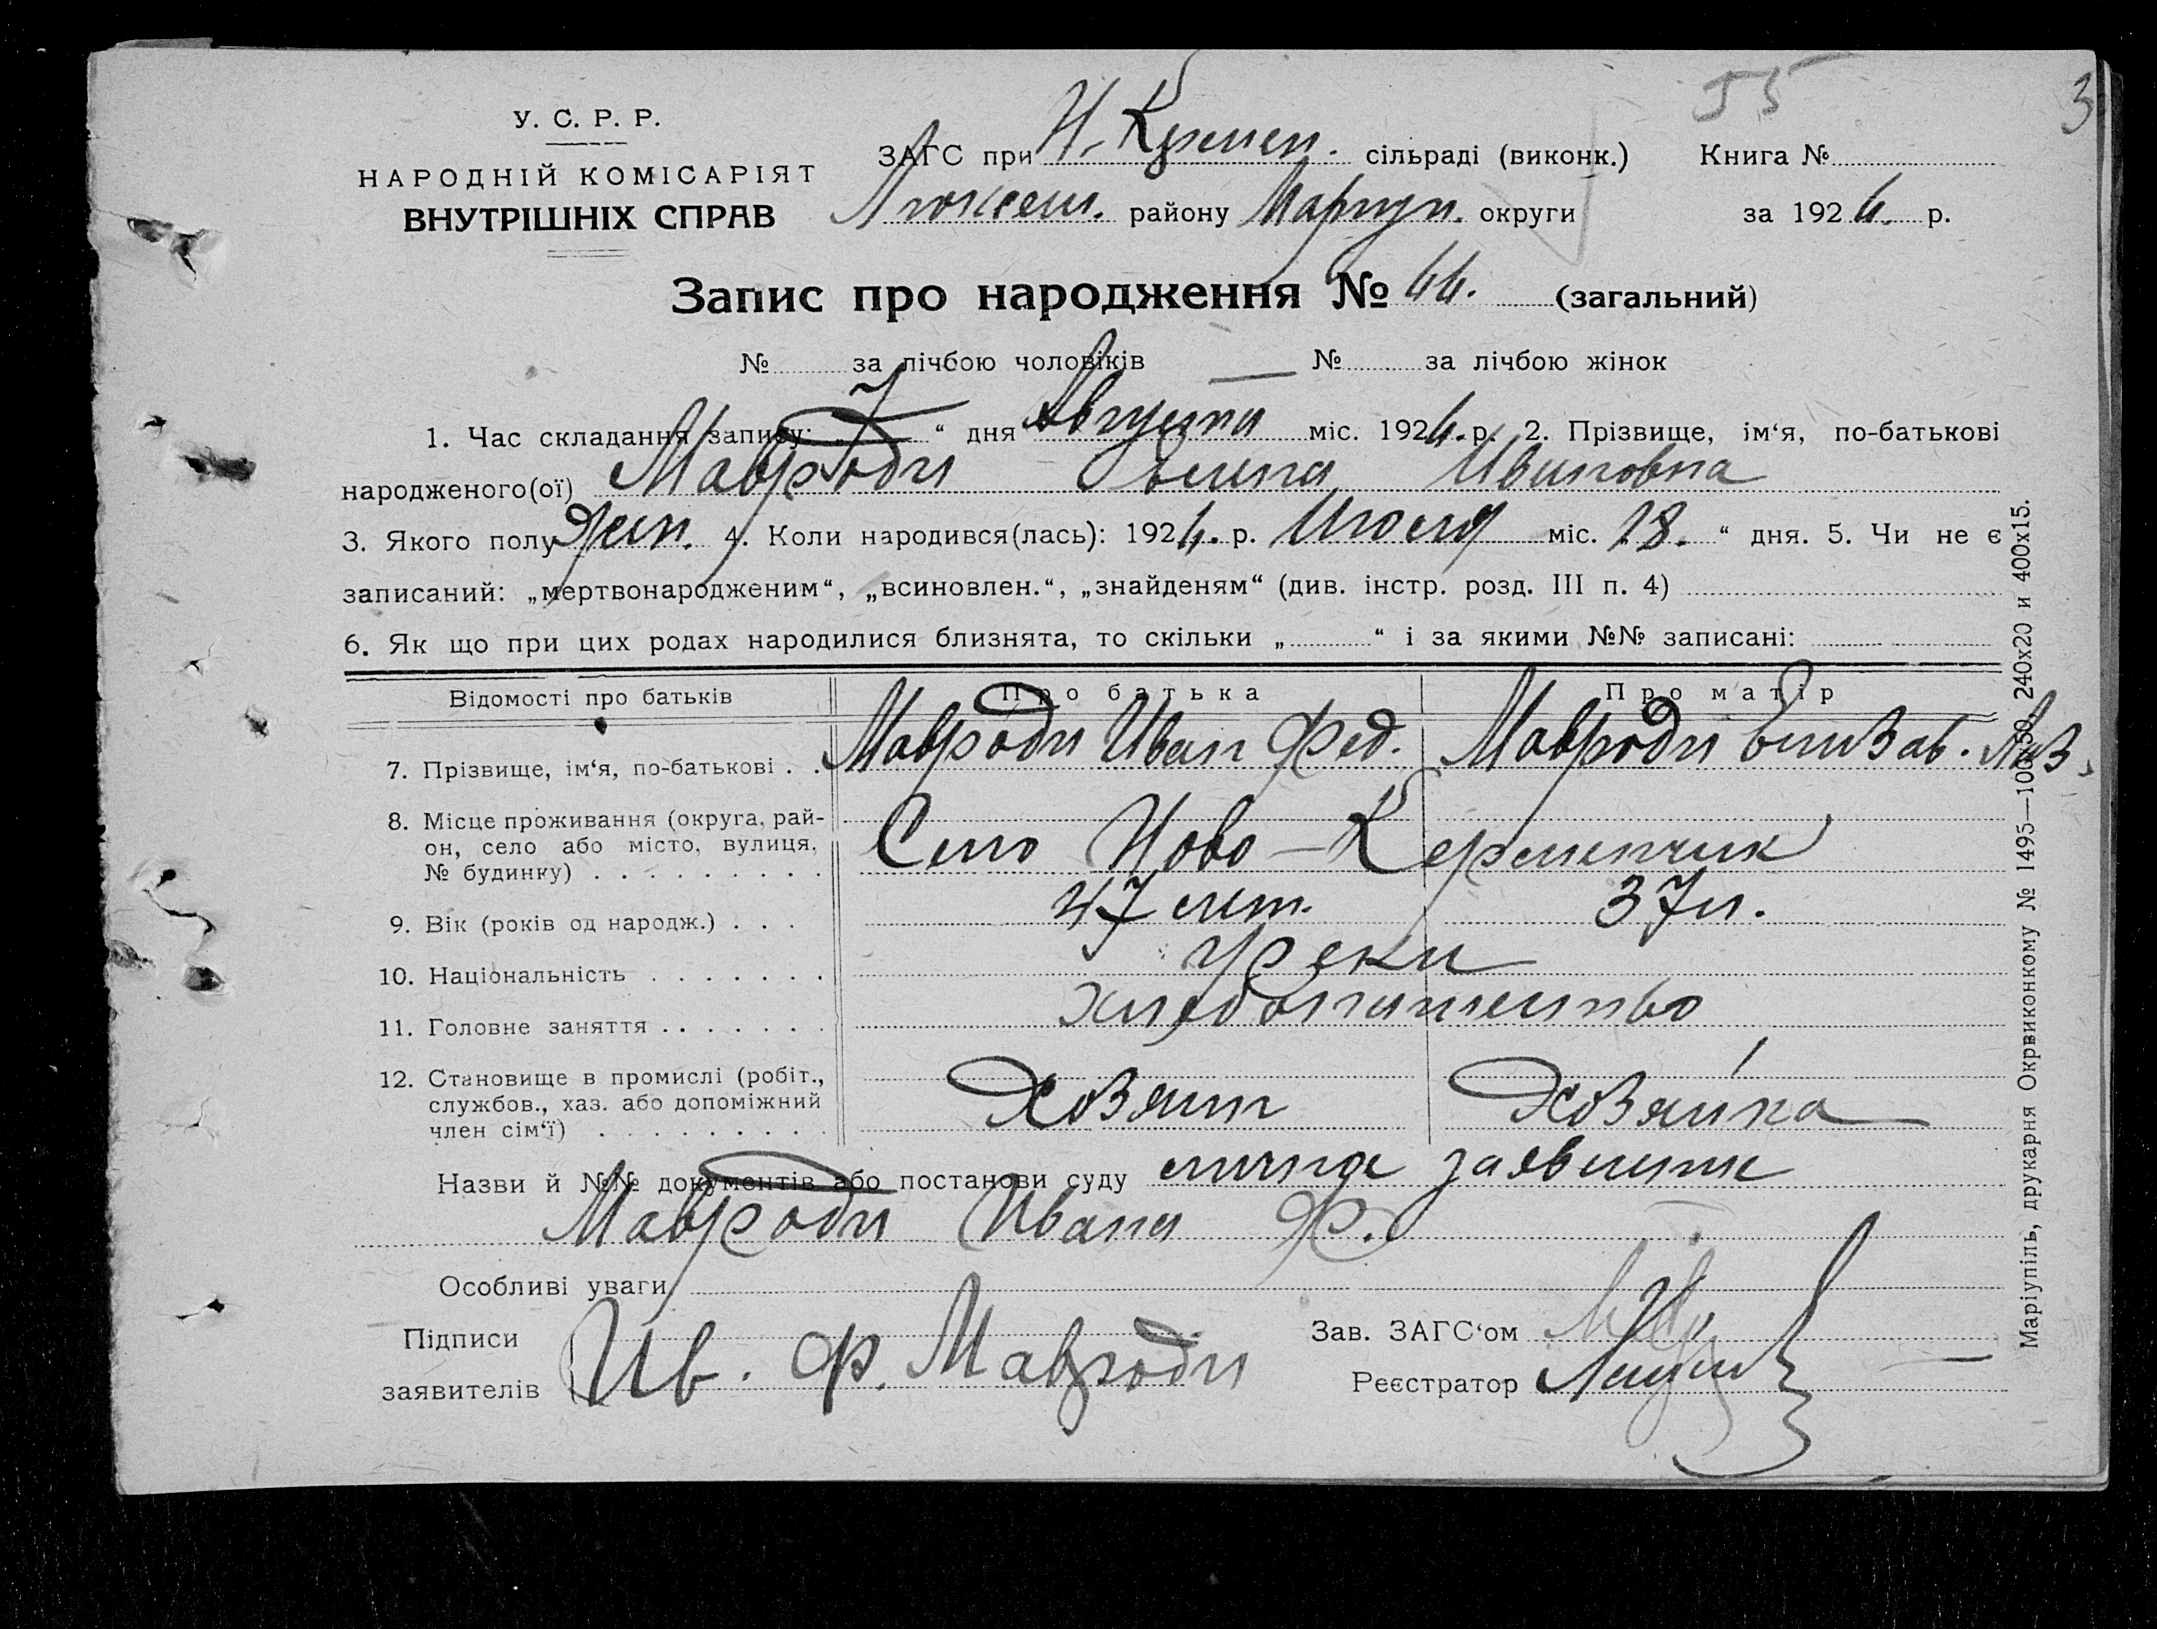 55
3
У. С. Р. Р.
НАРОДНІЙ КОМІСАРІЯТ
ВНУТРІШНІХ СПРАВ
ЗАГС при Н.-Кремен. сільраді (виконк.) Книга №
району Мариуп. округи за 1924. р.
Запис про народження № 44. (загальний)
№ за лічбою чоловіків — № за лічбою жінок
1. Час складання запису: „7“ дня Августа міс. 1924. р. 2. Прізвище, ім‘я, по-батькові
народженого(ої) Мавроди Елена Ивановна
3. Якого полу Жен. 4. Коли народився(лась): 1924. р. Июля міс. 18. “ дня. 5. Чи не є
записаний: „мертвонародженим“, „всиновлен.“, „знайденям“ (див. інстр. розд. III п. 4)
6. Як що при цих родах народилися близнята, то скільки „ “ і за якими №№ записані:
Відомості про батьків Про батька Про матір
7. Прізвище, ім‘я, по-батькові . . Мавроди Иван Фед. Мавроди Елизав. Лаз.
8. Місце проживання (округа, рай-
он, село або місто, вулиця,
№ будинку) Село Ново-Керменчик
9. Вік (років од народж.) . . . 47 лет. 37 л.
10. Національність Греки
11. Головне заняття Хлебопашество
12. Становище в промислі (робіт.,
службов., хаз. або допоміжний
член сім‘ї) Хозяин Хозяйка
Назви й №№ документів або постанови суду личное заявление
Мавроди Ивана Ф.
Особливі уваги
Підписи
заявителів Ив. Ф. Мавроди
Зав. ЗАГС‘ом
Реєстратор
Маріупіль, друкарня Окрвиконкому № 1495—100х50. 240х20 и 400х15.